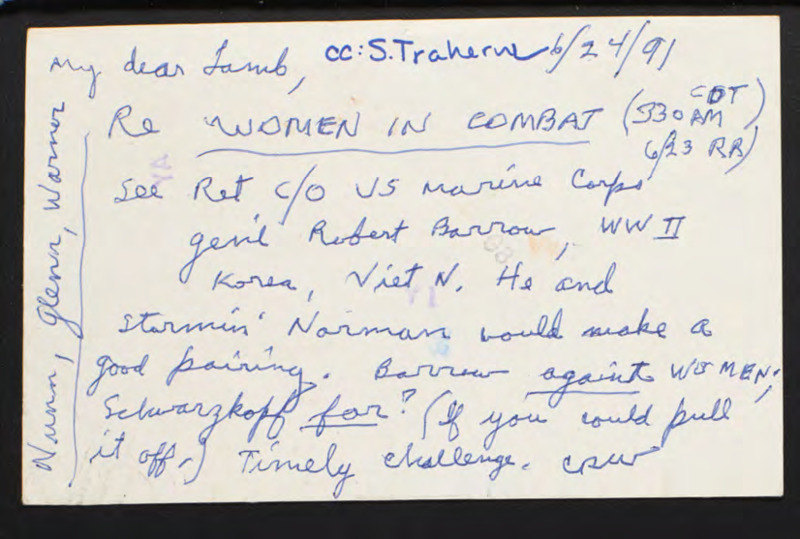 My dear Lamb, cc: S. Traherne 6/24/91
Re WOMEN IN COMBAT (530 AM CDT
6/23 RR)
See Ret C/O US Marine Corps
gen'l Robert Barrow, WW II
Korea, Viet N. He and
stormin' Norman would make a
good pairing. Barrow against WOMEN;
Schwarzkopf for? (If you could pull
it off.) Timely challenge. CRW
Nunn, Glenn, Warner